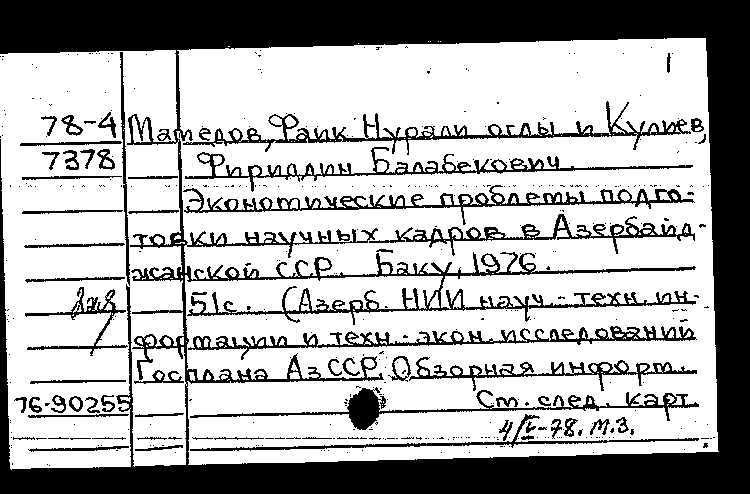 1
78-4 Мамедов, Фаик Нурали оглы и Кулиев,
7378 Фириддин Балабекович.
Экономические проблемы подго-
товки научных кадров в Азербайд-
жанской ССР. Баку, 1976.
51с. (Азерб. НИИ науч.-техн. ин-
формации и техн.-экон. исследований
Госплана АзССР. Обзорная информ.
76-90255 См. след. карт.
4/V-78. М.З.